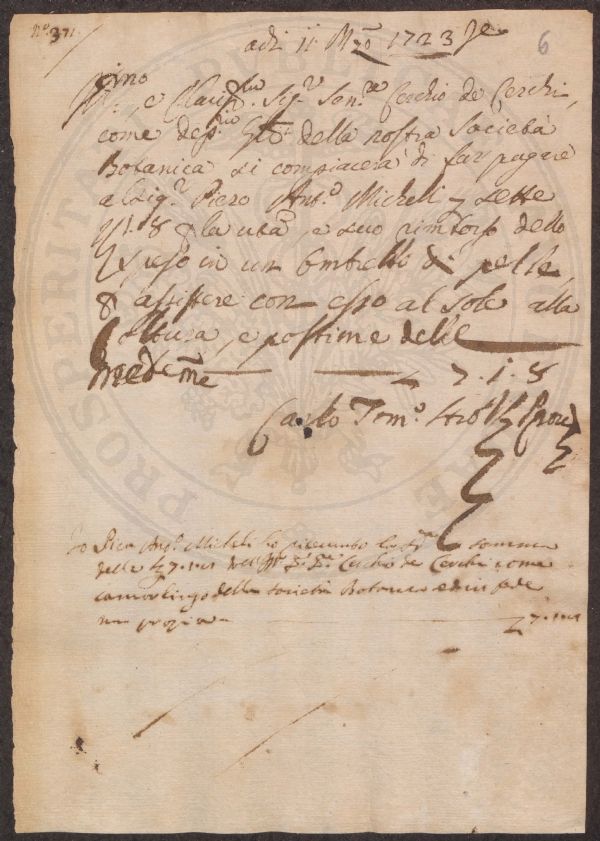 No. 371
6
adi 11 Mzo 1723
Ill.mo e Clariss.mo Sig.r Sen.re Cerchio de Cerchi,
come dep.rio Gle della nostra Società
Botanica si compiacerà di far pagare
al Sig.r Piero Ant.o Micheli sette
1. 8 la uta e suo rimborso dello
speso in un Ombrello di pelle,
assistere con esso al Sole alla
Coltura, e postime delle
medeme 7. 1. 8
Carlo Tom.o
Io Pier Ant.o Micheli ho ricevuto la sd.a somma
delle 7. 1. 8 dell Ill. Sig. Cerchio de Cerchi come
camarlingo della società Botanica ed in fede
m propia 7. 1. 8
PROSPERITATI PUBLICAE